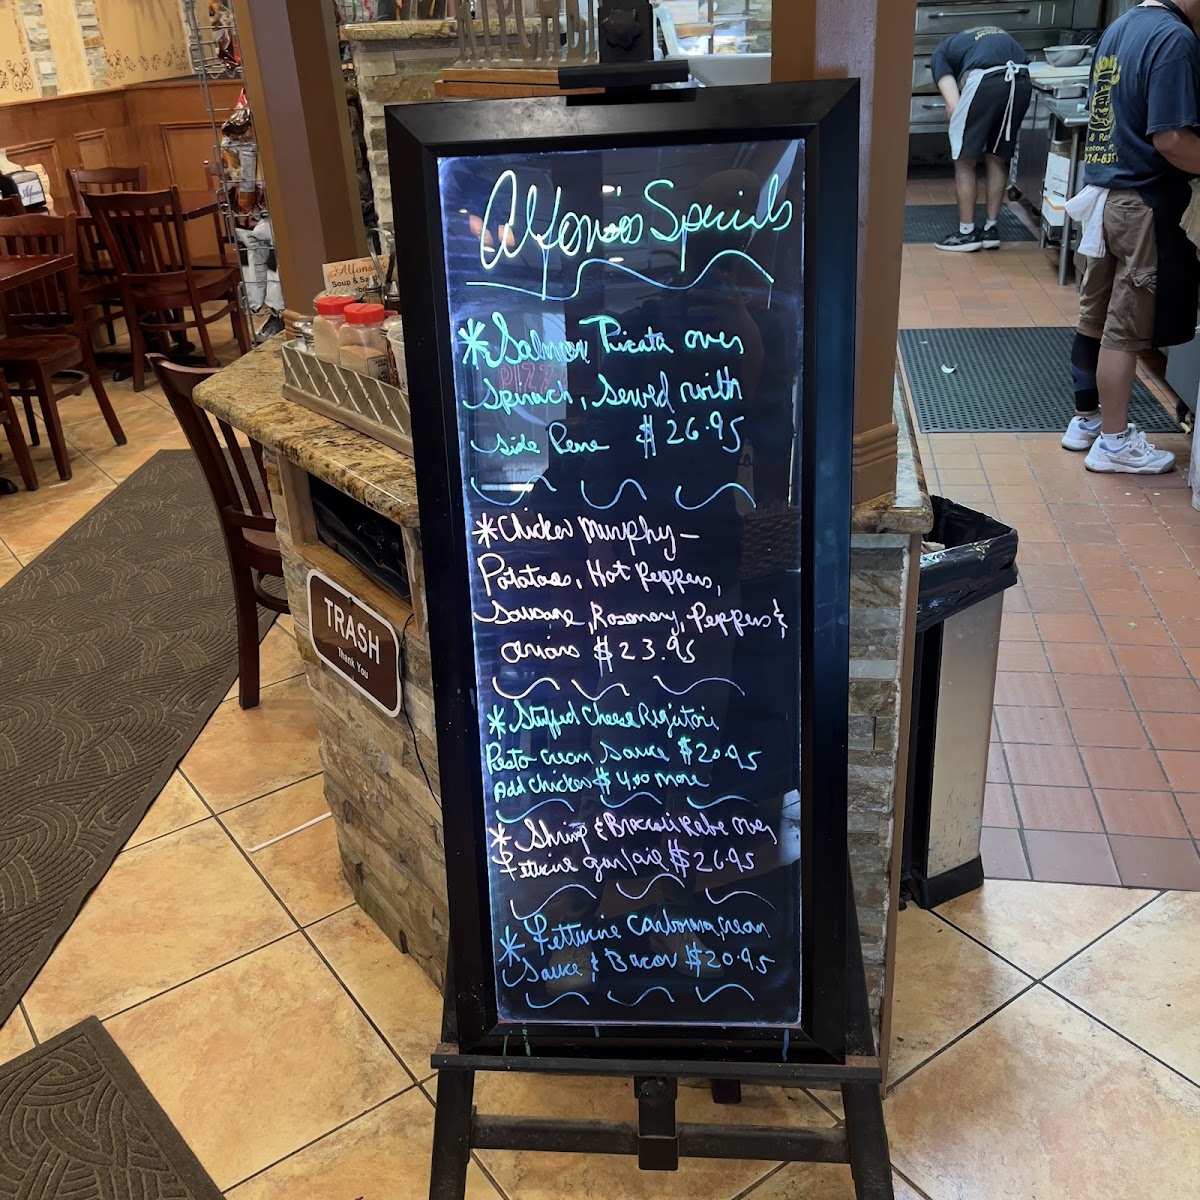 Alfonso's Specials
*Salmon Picata over
Spinach, Served with
side Pene $26.95
*Chicken Murphy -
Potatoes, Hot Peppers,
Sausage, Rosemary, Peppers &
onions $23.95
*Stuffed Cheese Rigatoni
Pesto cream sauce $20.95
Add chicken $4.00 more
* Shrimp & Broccoli Rabe over
Fettucine garl/oil $26.95
* Fettucine Carbonara, cream
Sauce & Bacon $20.95
TRASH
Thank You
Alfonso
Soup & Sa
PIZZ